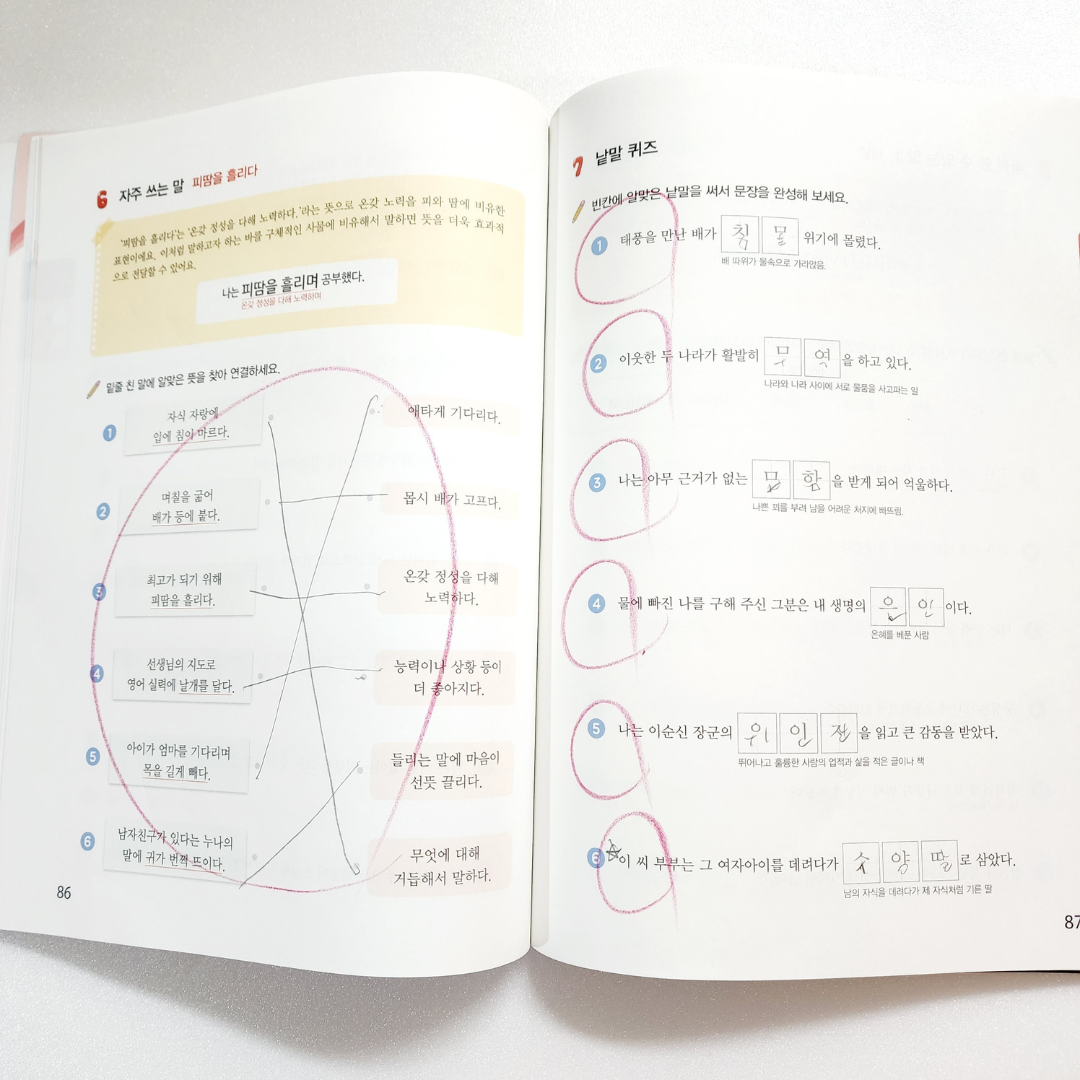 6 자주 쓰는 말 피땀을 흘리다
'피땀을 흘리다'는 '온갖 정성을 다해 노력하다.'라는 뜻으로 온갖 노력을 피와 땀에 비유한
표현이에요. 이처럼 말하고자 하는 바를 구체적인 사물에 비유해서 말하면 뜻을 더욱 효과적
으로 전달할 수 있어요.
나는 피땀을 흘리며 공부했다.
온갖 정성을 다해 노력하며
밑줄 친 말에 알맞은 뜻을 찾아 연결하세요.
1 자식 자랑에
입에 침이 마르다.
애타게 기다리다.
2 며칠을 굶어
배가 등에 붙다.
몹시 배가 고프다.
3 최고가 되기 위해
피땀을 흘리다.
온갖 정성을 다해
노력하다.
4 선생님의 지도로
영어 실력에 날개를 달다.
능력이나 상황 등이
더 좋아지다.
5 아이가 엄마를 기다리며
목을 길게 빼다.
들리는 말에 마음이
선뜻 끌리다.
6 남자친구가 있다는 누나의
말에 귀가 번쩍 뜨이다.
무엇에 대해
거듭해서 말하다.
86
7 낱말 퀴즈
빈칸에 알맞은 낱말을 써서 문장을 완성해 보세요.
1 태풍을 만난 배가 침몰 위기에 몰렸다.
배 따위가 물속으로 가라앉음.
2 이웃한 두 나라가 활발히 무역을 하고 있다.
나라와 나라 사이에 서로 물품을 사고파는 일
3 나는 아무 근거가 없는 모함을 받게 되어 억울하다.
나쁜 꾀를 부려 남을 어려운 처지에 빠뜨림.
4 물에 빠진 나를 구해 주신 그분은 내 생명의 은인이다.
은혜를 베푼 사람
5 나는 이순신 장군의 위인전을 읽고 큰 감동을 받았다.
뛰어나고 훌륭한 사람의 업적과 삶을 적은 글이나 책
6 이 씨 부부는 그 여자아이를 데려다가 수양딸로 삼았다.
남의 자식을 데려다가 제 자식처럼 기른 딸
87